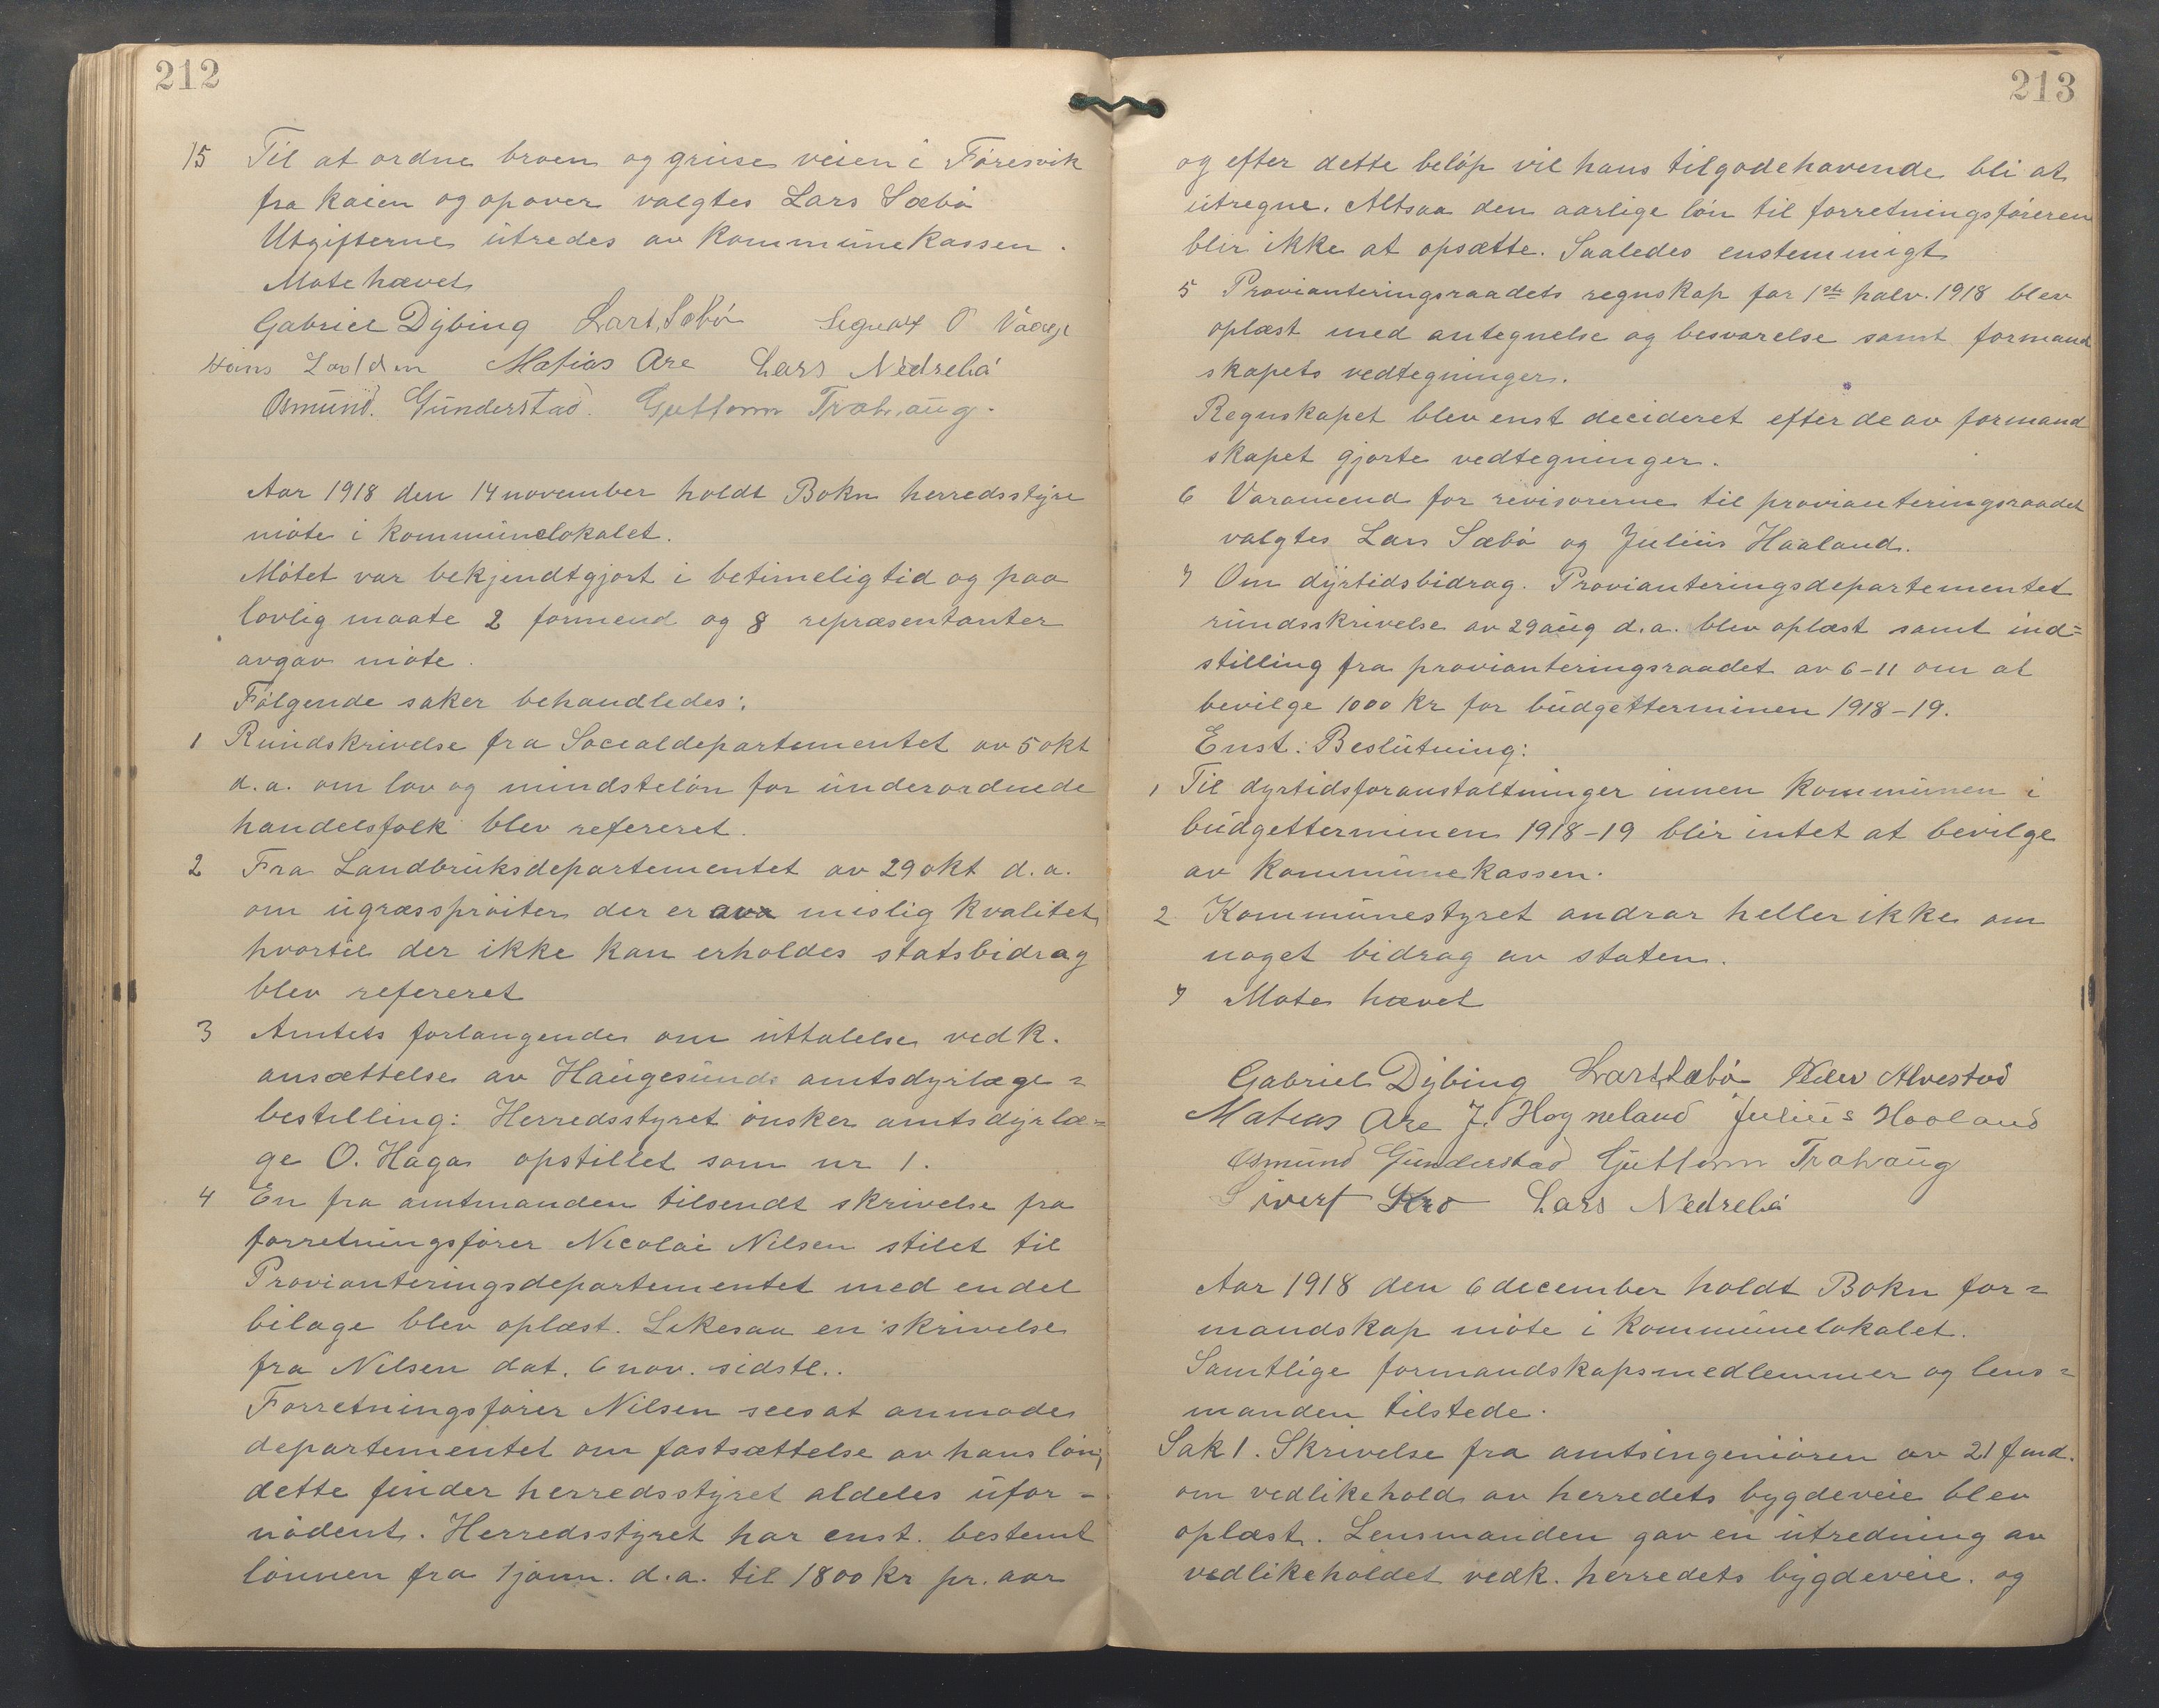 212
15 Til at ordne broen og gruse veien i Føresvik
fra kaien og opover valgtes Lars Sæbø
Utgifterne utredes av kommunekassen.
Møte hævet
Gabriel Dybing Lars Sæbø O Vaage
Hans Matias Are Lars Nedrebø
Osmund Gunderstad. Guttorm Trohaug.
Aar 1918 den 14 november holdt Bokn herredsstyre
møte i kommunelokalet.
Møtet var bekjendtgjort i betimelig tid og paa
lovlig maate 2 formend og 8 repræsentanter
avgav møte.
Følgende saker behandledes:
1 Rundskrivelse fra Socialdepartementet av 5 okt
d.a. om lov og mindsteløn for underordnede
handelsfolk blev refereret.
2 Fra Landbruksdepartementet av 29 okt d.a.
om ugræssprøiter der er ava mislig kvalitet
hvortil der ikke kan erholdes statsbidrag
blev refereret
3 Amtets forlangende om uttalelse vedk.
ansættelse av Haugesunds amtsdyrlæge=
bestilling: Herredsstyret ønsker amtsdyrlæ=
ge O. Haga opstillet som nr 1.
4 En fra amtmanden tilsendt skrivelse fra
forretningsfører Nicolai Nilsen stilet til
Provianteringsdepartementet med endel
bilage blev oplæst. Likesaa en skrivelse
fra Nilsen dat. 6 nov. sidstl..
Forretningsfører Nilsen sees at anmode
departementet om fastsættelse av hans løn,
dette finder herredsstyret aldeles ufor-
nødent. Herredsstyret har enst. bestemt
lønnen fra 1 jann. d.a. til 1800 kr pr. aar
213
og efter dette beløp vil hans tilgodehavende bli at
utregne. Altsaa den aarlige løn til forretningsføreren
blir ikke at opsætte. Saaledes enstemmigt
5 Provianteringsraadets regnskap for 1ste halv. 1918 blev
oplæst med antegnelse og besvarelse samt formand
skapets vedtegninger.
Regnskapet blev enst decideret efter de av formand
skapet gjorte vedtegninger.
6 Varamend for revisorerne til provianteringsraadet
valgtes Lars Sæbø og Julius Haaland.
7 Om dyrtidsbidrag. Provianteringsdepartementet
rundsskrivelse av 29 aug d.a. blev oplæst samt ind=
stilling fra provianteringsraadet av 6-11 om at
bevilge 1000 kr for budgetterminen 1918-19.
Enst: Beslutning:
1 Til dyrtidsforanstaltninger innen kommunen i
budgetterminen 1918-19 blir intet at bevilge
av kommunekassen.
2 Kommunestyret andrar heller ikke om
noget bidrag av staten.
7 Møte hævet
Gabriel Dybing Lars Sæbø Peder Alvestad
Matias Are J. Høyneland Julius Haaland
Osmund Gunderstad Guttorm Trohaug
Sivert Kro Lars Nedrebø
Aar 1918 den 6 december holdt Bokn for=
mandskap møte i kommunelokalet.
Samtlige formandskapsmedlemmer og lens=
manden tilstede.
Sak 1. Skrivelse fra amtsingeniøren av 21 f md.
om vedlikehold av herredets bygdeveie blev
oplæst. Lensmanden gav en utredning av
vedlikeholdet vedk. herredets bygdeveie. og